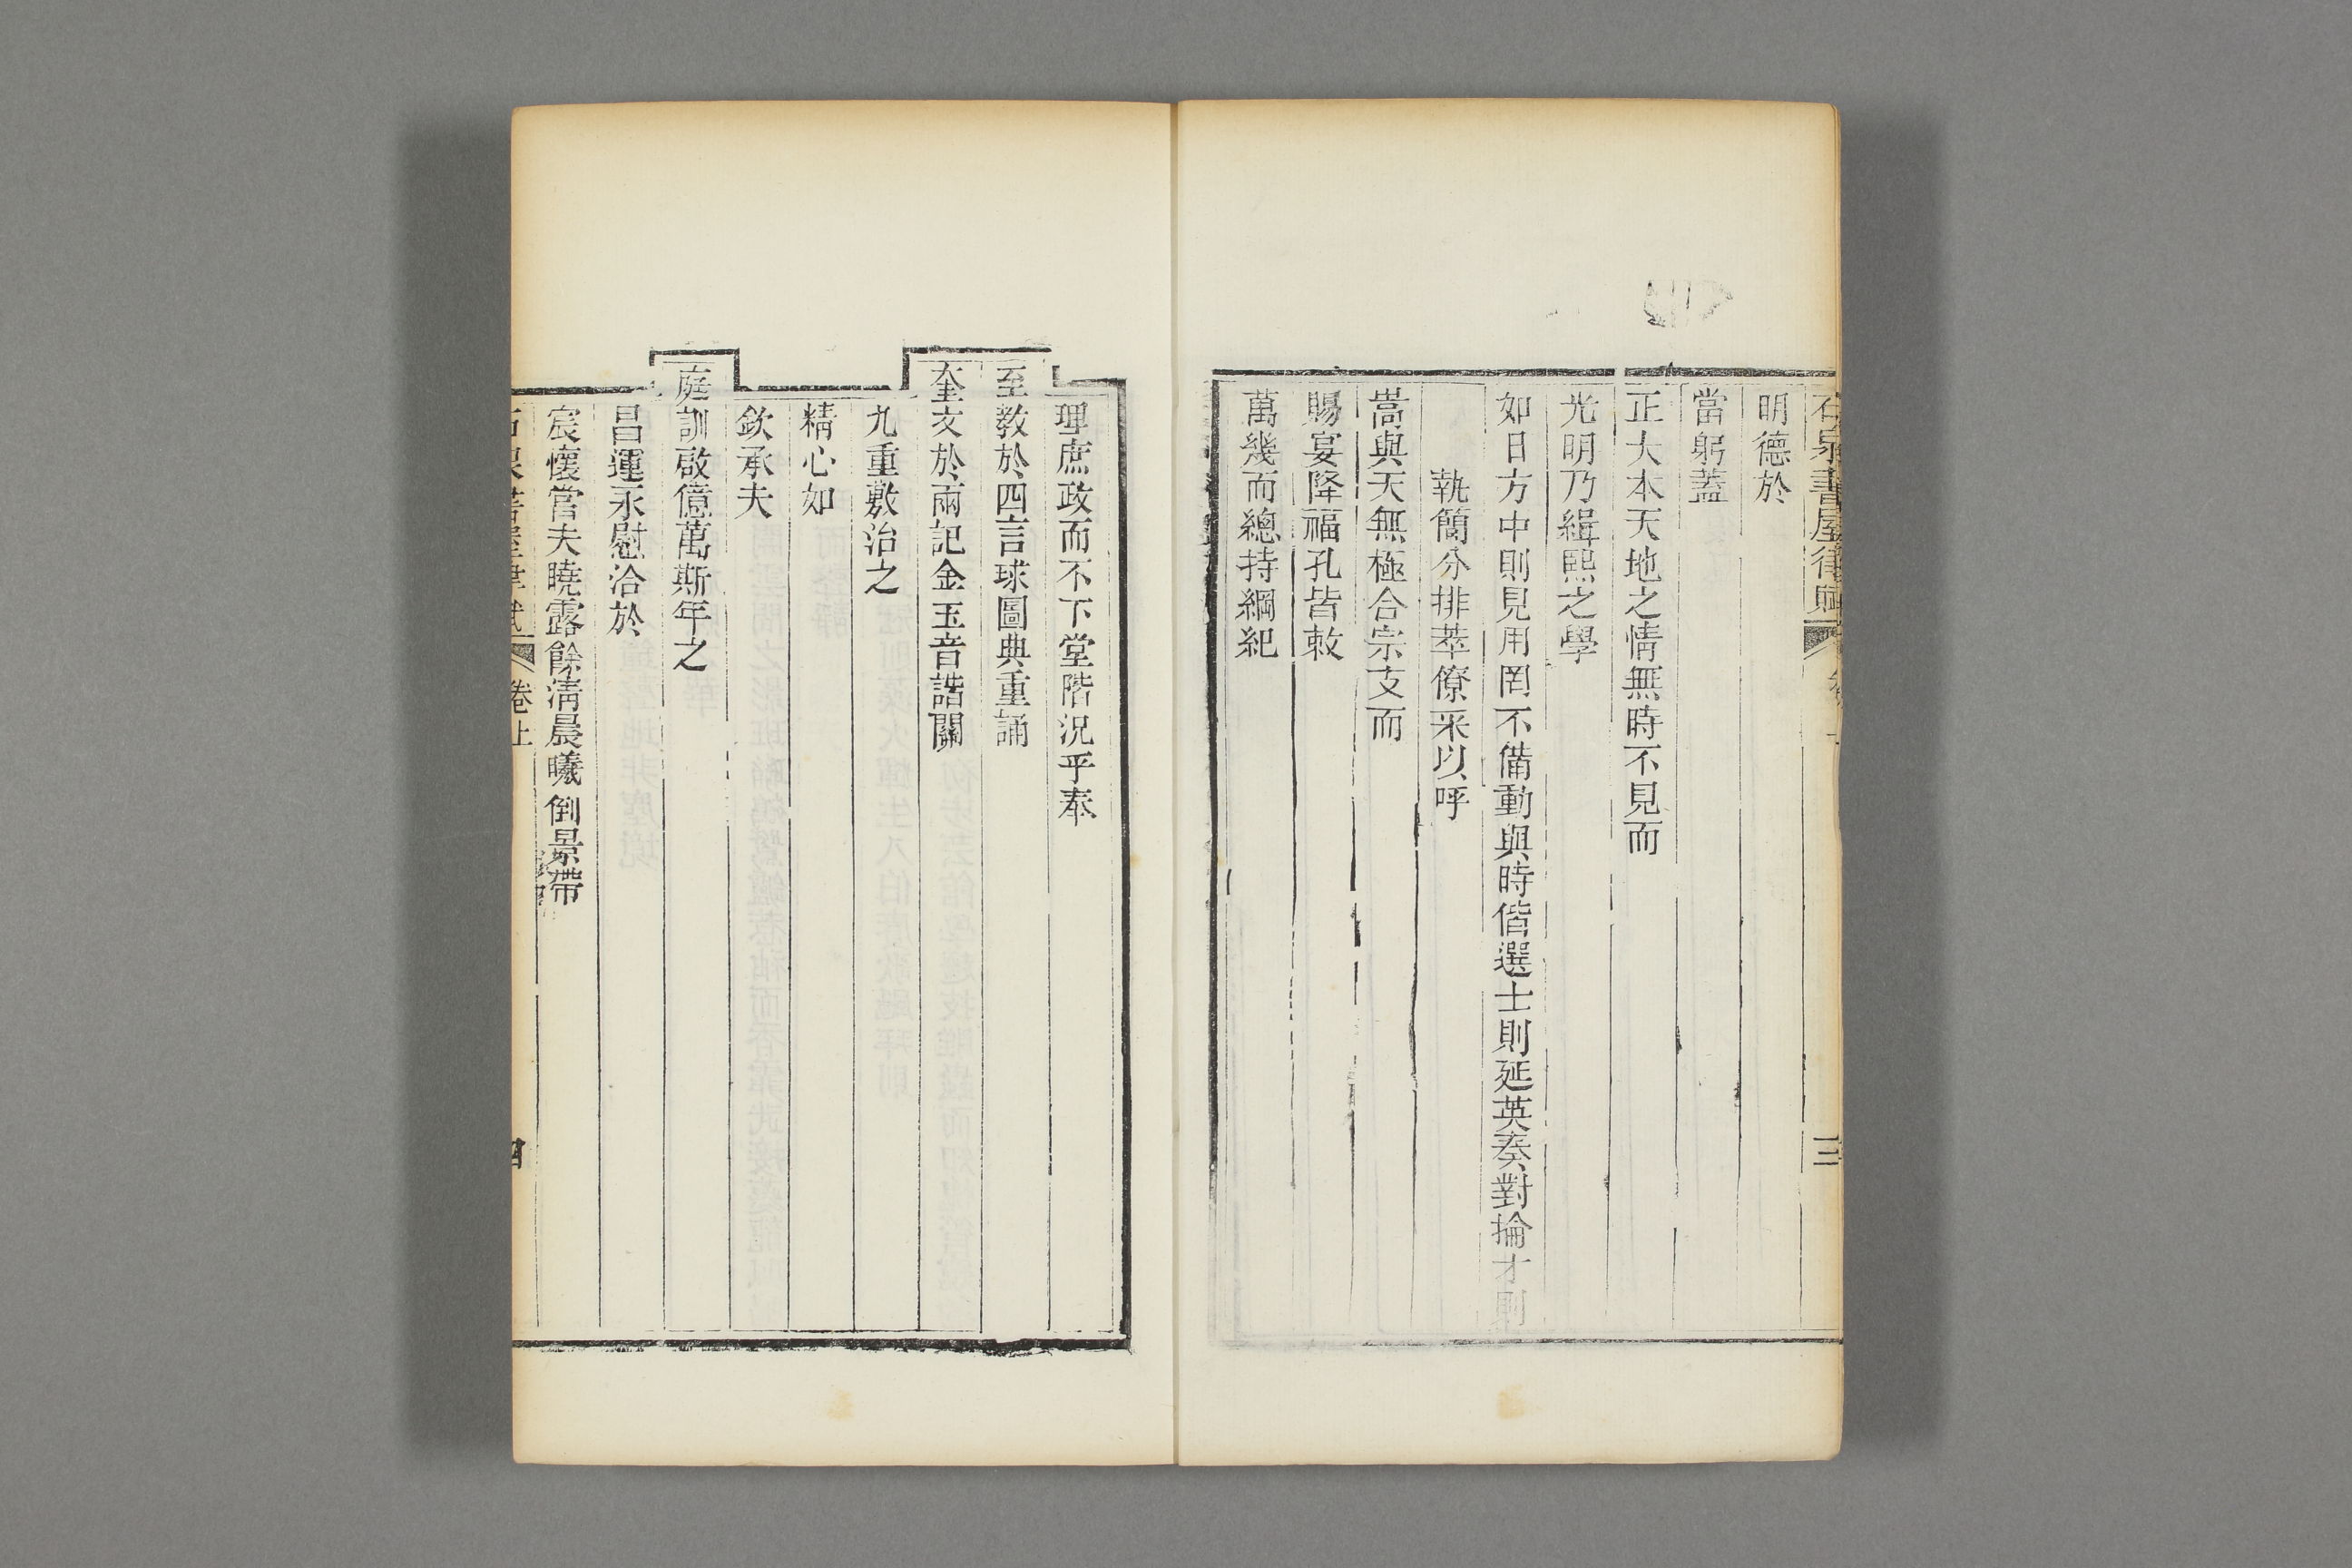 石泉書屋律賦
三
明德於
當躬蓋
正大本天地之情無時不見而
光明乃緝熙之學
如日方中則見用罔不備動與時偕選士則延英奏對掄才則
執簡分排萃僚寀以呼
嵩與天無極合宗支而
賜宴降福孔皆敕
萬幾而總持綱紀
理庶政而不下堂階況乎奉
至教於四言球圖典重誦
奎文於兩記金玉音諧闢
九重敷治之
精心如
欽承夫
庭訓啟億萬斯年之
昌運永慰洽於
宸懷當夫曉露餘淸晨曦倒景帶
卷上
四